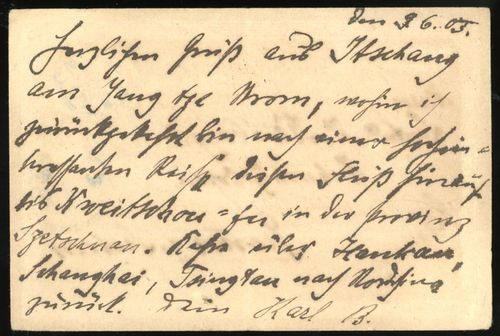 den 9.6.05.
Herzlichen Gruß aus Itschang
am Yang tze Strom, wohin ich
zurückgekehrt bin nach einer hochin=
teressanten Reise diesen Fluß hinauf
bis Kweitschou=fu in der Provinz
Szetschuan. Kehre über Hankau
Schanghai, Tsingtau nach
zurück. Dein Karl B.